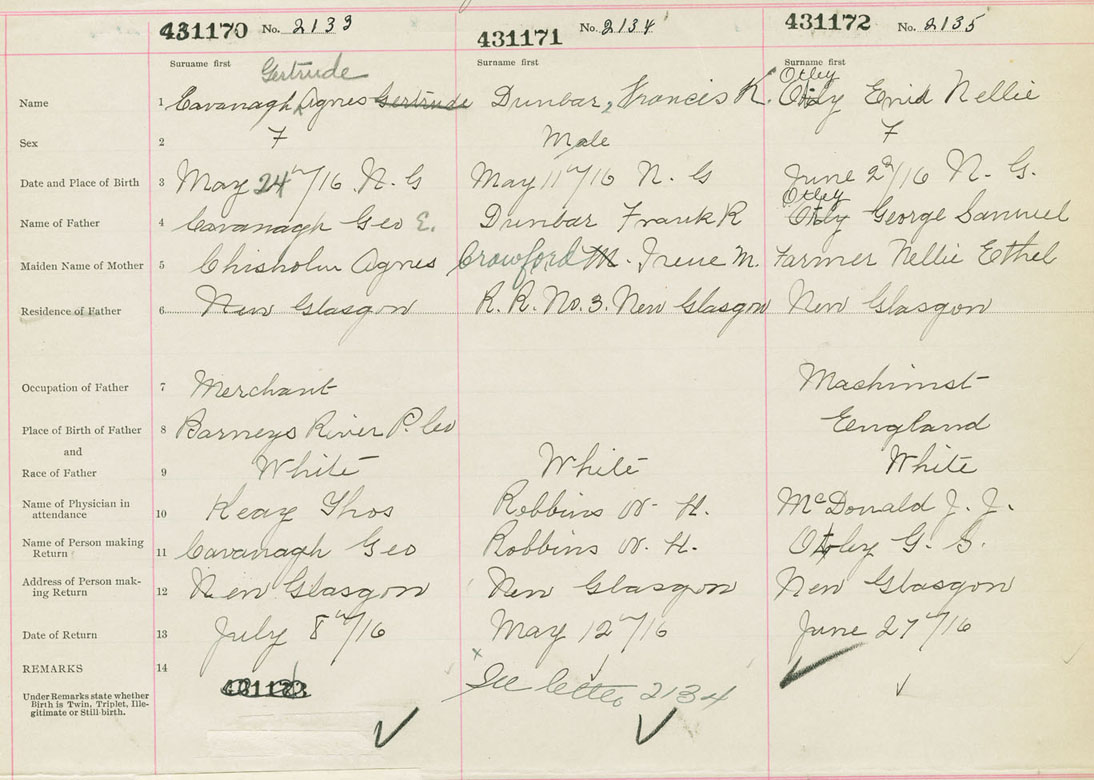 431170 No. 2133 431171 No. 2134 431172 No. 2135
Surname first Gertrude Surname first Surname first Otley
Name 1 Cavanagh, Agnes Gertrude Dunbar, Francis R. Otly Enid Nellie
Sex 2 F Male F
Date and Place of Birth 3 May 24th/16 N. G May 11th/16 N. G June 2nd/16 N. G.
Otley
Name of Father 4 Cavanagh Geo E. Dunbar Frank R Otly George Samuel
Maiden Name of Mother 5 Chisholm Agnes Crowford M. Irene M. Farmer Nellie Ethel
Residence of Father 6 New Glasgow R. R. No. 3. New Glasgow New Glasgow
Occupation of Father 7 Merchant Machinist
Place of Birth of Father 8 Barneys River P. Co England
and
Race of Father 9 White White White
Name of Physician in
attendance 10 Keay Thos Robbins W. H. McDonald J. J.
Name of Person making
Return 11 Cavanagh Geo Robbins W. H. Otley G. S.
Address of Person mak-
ing Return 12 New Glasgow New Glasgow New Glasgow
Date of Return 13 July 8th/16 May 12th/16 June 27th/16
REMARKS 14
See letter 2134
Under Remarks state whether
Birth is Twin, Triplet, Ille-
gitimate or Still-birth.